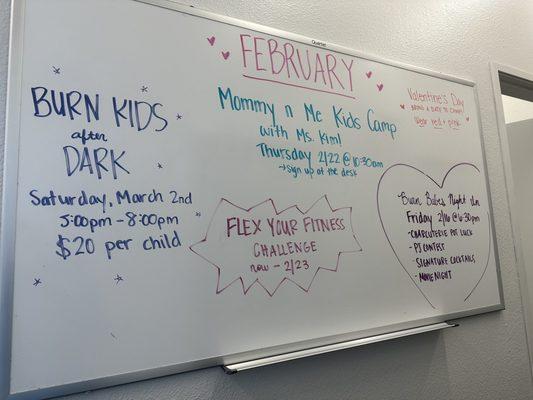 Quartet
FEBRUARY
BURN KIDS
after
DARK
Saturday, March 2nd
5:00pm - 8:00pm
$20 per child
Mommy n Me Kids Camp
with Ms. Kim!
Thursday 2/22 @ 10:30am
→ sign up at the desk
FLEX YOUR FITNESS
CHALLENGE
now - 2/23
Valentine's Day
BRING A DATE TO CAMP!
Wear red + pink
Burn Babes Night In
Friday 2/16 @ 6:30pm
- CHARCUTERIE POT LUCK
- PJ CONTEST
- SIGNATURE COCKTAILS
- MOVIE NIGHT